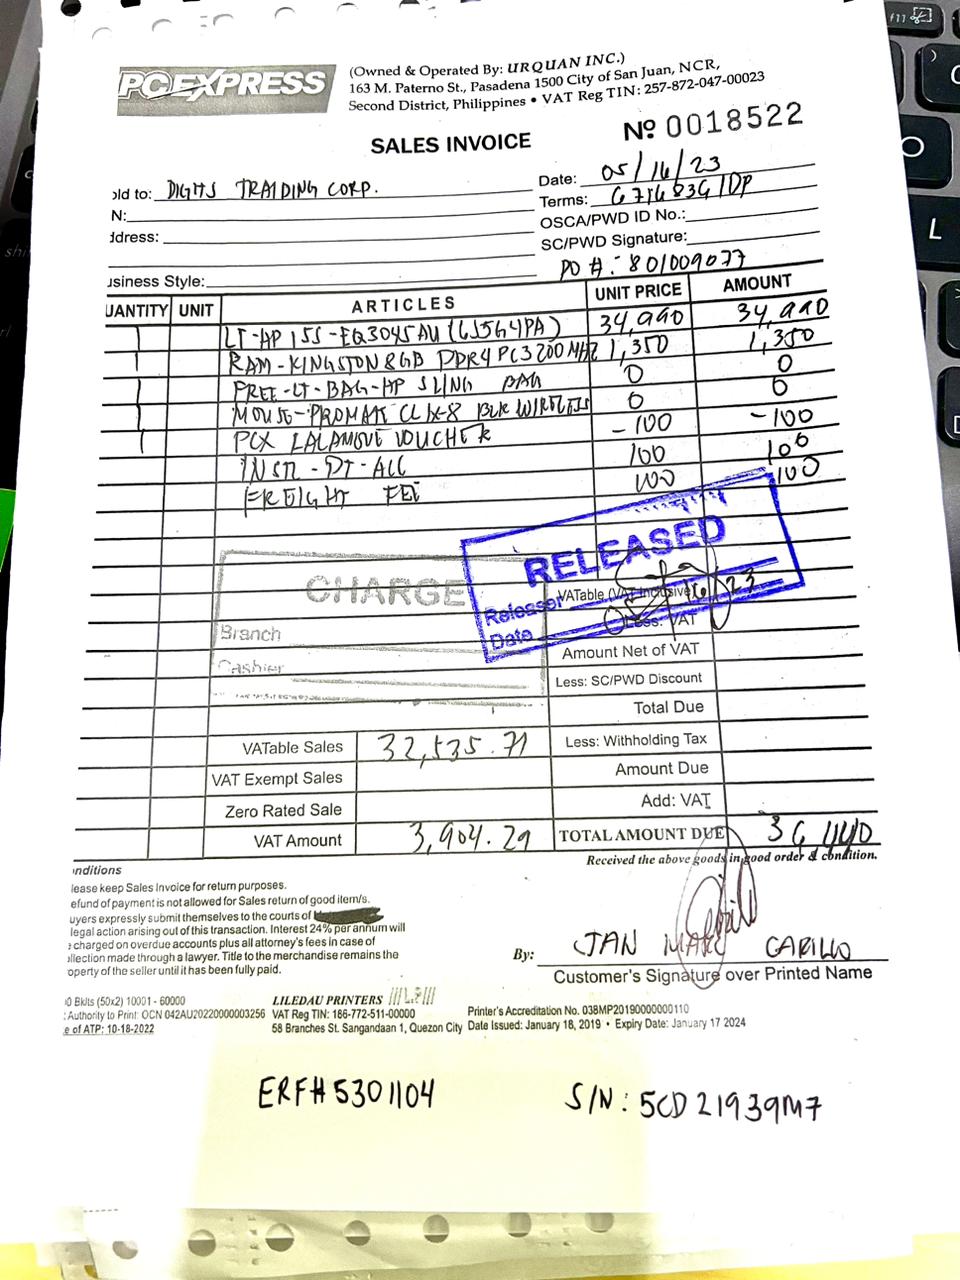 PCEXPRESS
(Owned & Operated By: URQUAN INC.)
163 M. Paterno St., Pasadena 1500 City of San Juan, NCR,
Second District, Philippines • VAT Reg TIN: 257-872-047-00023
SALES INVOICE
Nº 0018522
old to: DIGITS TRAIDING CORP.
Date: 05/16/23
Terms: 6756836/DP
N:
OSCA/PWD ID No.:
ddress:
SC/PWD Signature:
PO #: 801009077
usiness Style:
UANTITY UNIT ARTICLES UNIT PRICE AMOUNT
1 LT-HP 15S-EQ3045AU (6J5G4PA) 34,990 34,990
1 RAM-KINGSTON 8GB DDR4 PC3200MHZ 1,350 1,350
1 FREE-LT-BAG-HP SLING BAG 0 0
1 MOUSE-PROMATE CLIX-8 BLK WIRELESS 0 0
1 PCX LALAMOVE VOUCHER -100 -100
INSTL-DT-ALL 100 100
FREIGHT FEE 100 100
RELEASED
Releaser
Date
CHARGE
Branch
Cashier
VATable (VAT Inclusive)
Less: VAT
Amount Net of VAT
Less: SC/PWD Discount
Total Due
VATable Sales 32,535.71 Less: Withholding Tax
VAT Exempt Sales Amount Due
Zero Rated Sale Add: VAT
VAT Amount 3,904.29 TOTAL AMOUNT DUE 36,440
Received the above goods in good order & condition.
nditions
lease keep Sales Invoice for return purposes.
efund of payment is not allowed for Sales return of good item/s.
uyers expressly submit themselves to the courts of
legal action arising out of this transaction. Interest 24% per annum will
e charged on overdue accounts plus all attorney's fees in case of
ollection made through a lawyer. Title to the merchandise remains the
operty of the seller until it has been fully paid.
By: JAN MARC CARILLO
Customer's Signature over Printed Name
0 Bklts (50x2) 10001 - 60000
Authority to Print: OCN 042AU20220000003256
e of ATP: 10-18-2022
LILEDAU PRINTERS
VAT Reg TIN: 186-772-511-00000
58 Branches St. Sangandaan 1, Quezon City
Printer's Accreditation No. 038MP20190000000110
Date Issued: January 18, 2019 • Expiry Date: January 17 2024
ERFH5301104
S/N: 5CD21939M7